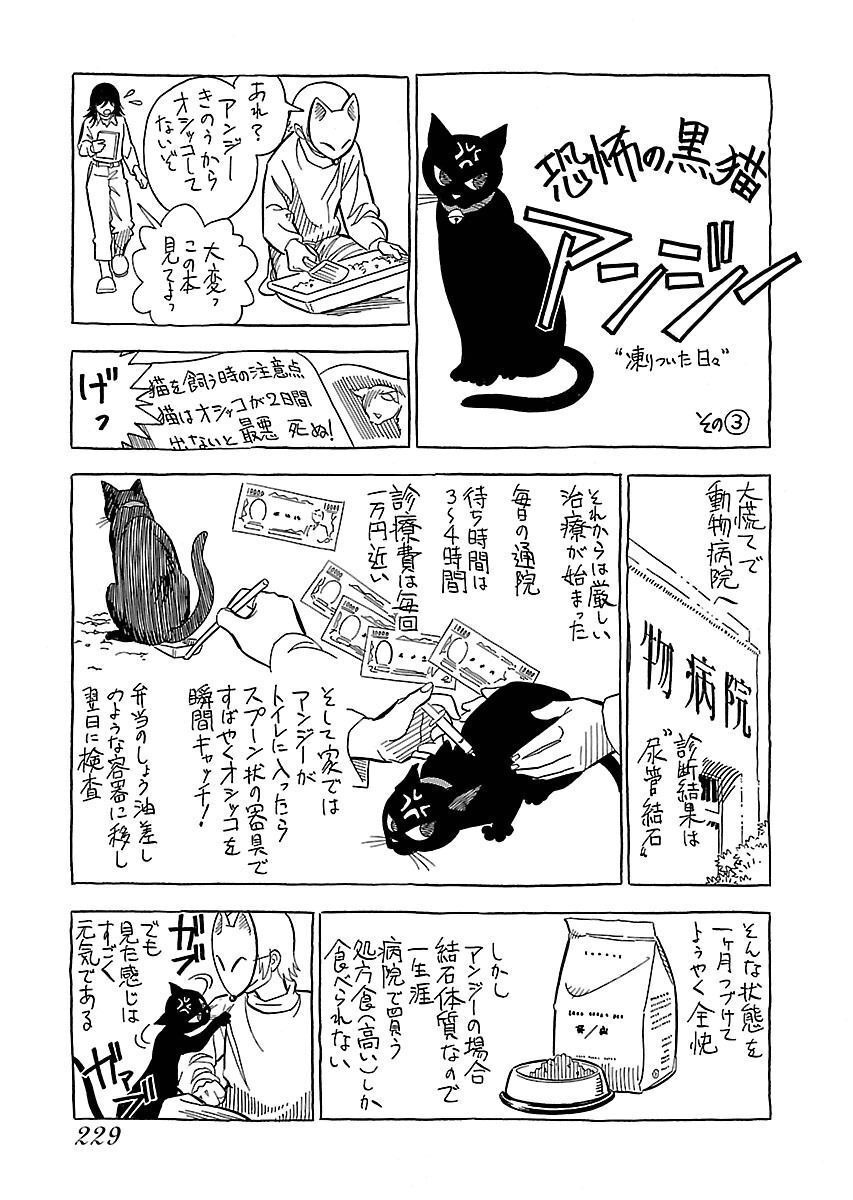 恐怖の黒猫
アンジー
“凍りついた日々”
その③
あれ?
アンジー
きのうから
オシッコして
ないぞ
大変っ
この本
見てよっ
猫を飼う時の注意点
猫はオシッコが2日間
出ないと最悪 死ぬ!
げっ
大慌てで
動物病院へ
物病院
診断結果は
“尿管結石”
それからは厳しい
治療が始まった
毎日の通院
待ち時間は
3〜4時間
診療費は毎回
一万円近い
10000
10000
10000
10000
10000
そして家では
アンジーが
トイレに入ったら
スプーン状の器具で
すばやくオシッコを
瞬間キャッチ!
弁当のしょう油差し
のような容器に移し
翌日に検査
そんな状態を
一ヶ月つづけて
ようやく全快
しかし
アンジーの場合
結石体質なので
一生涯
病院で買う
処方食(高い)しか
食べられない
でも
見た感じは
すごく
元気である
ガブ
ガブ
229